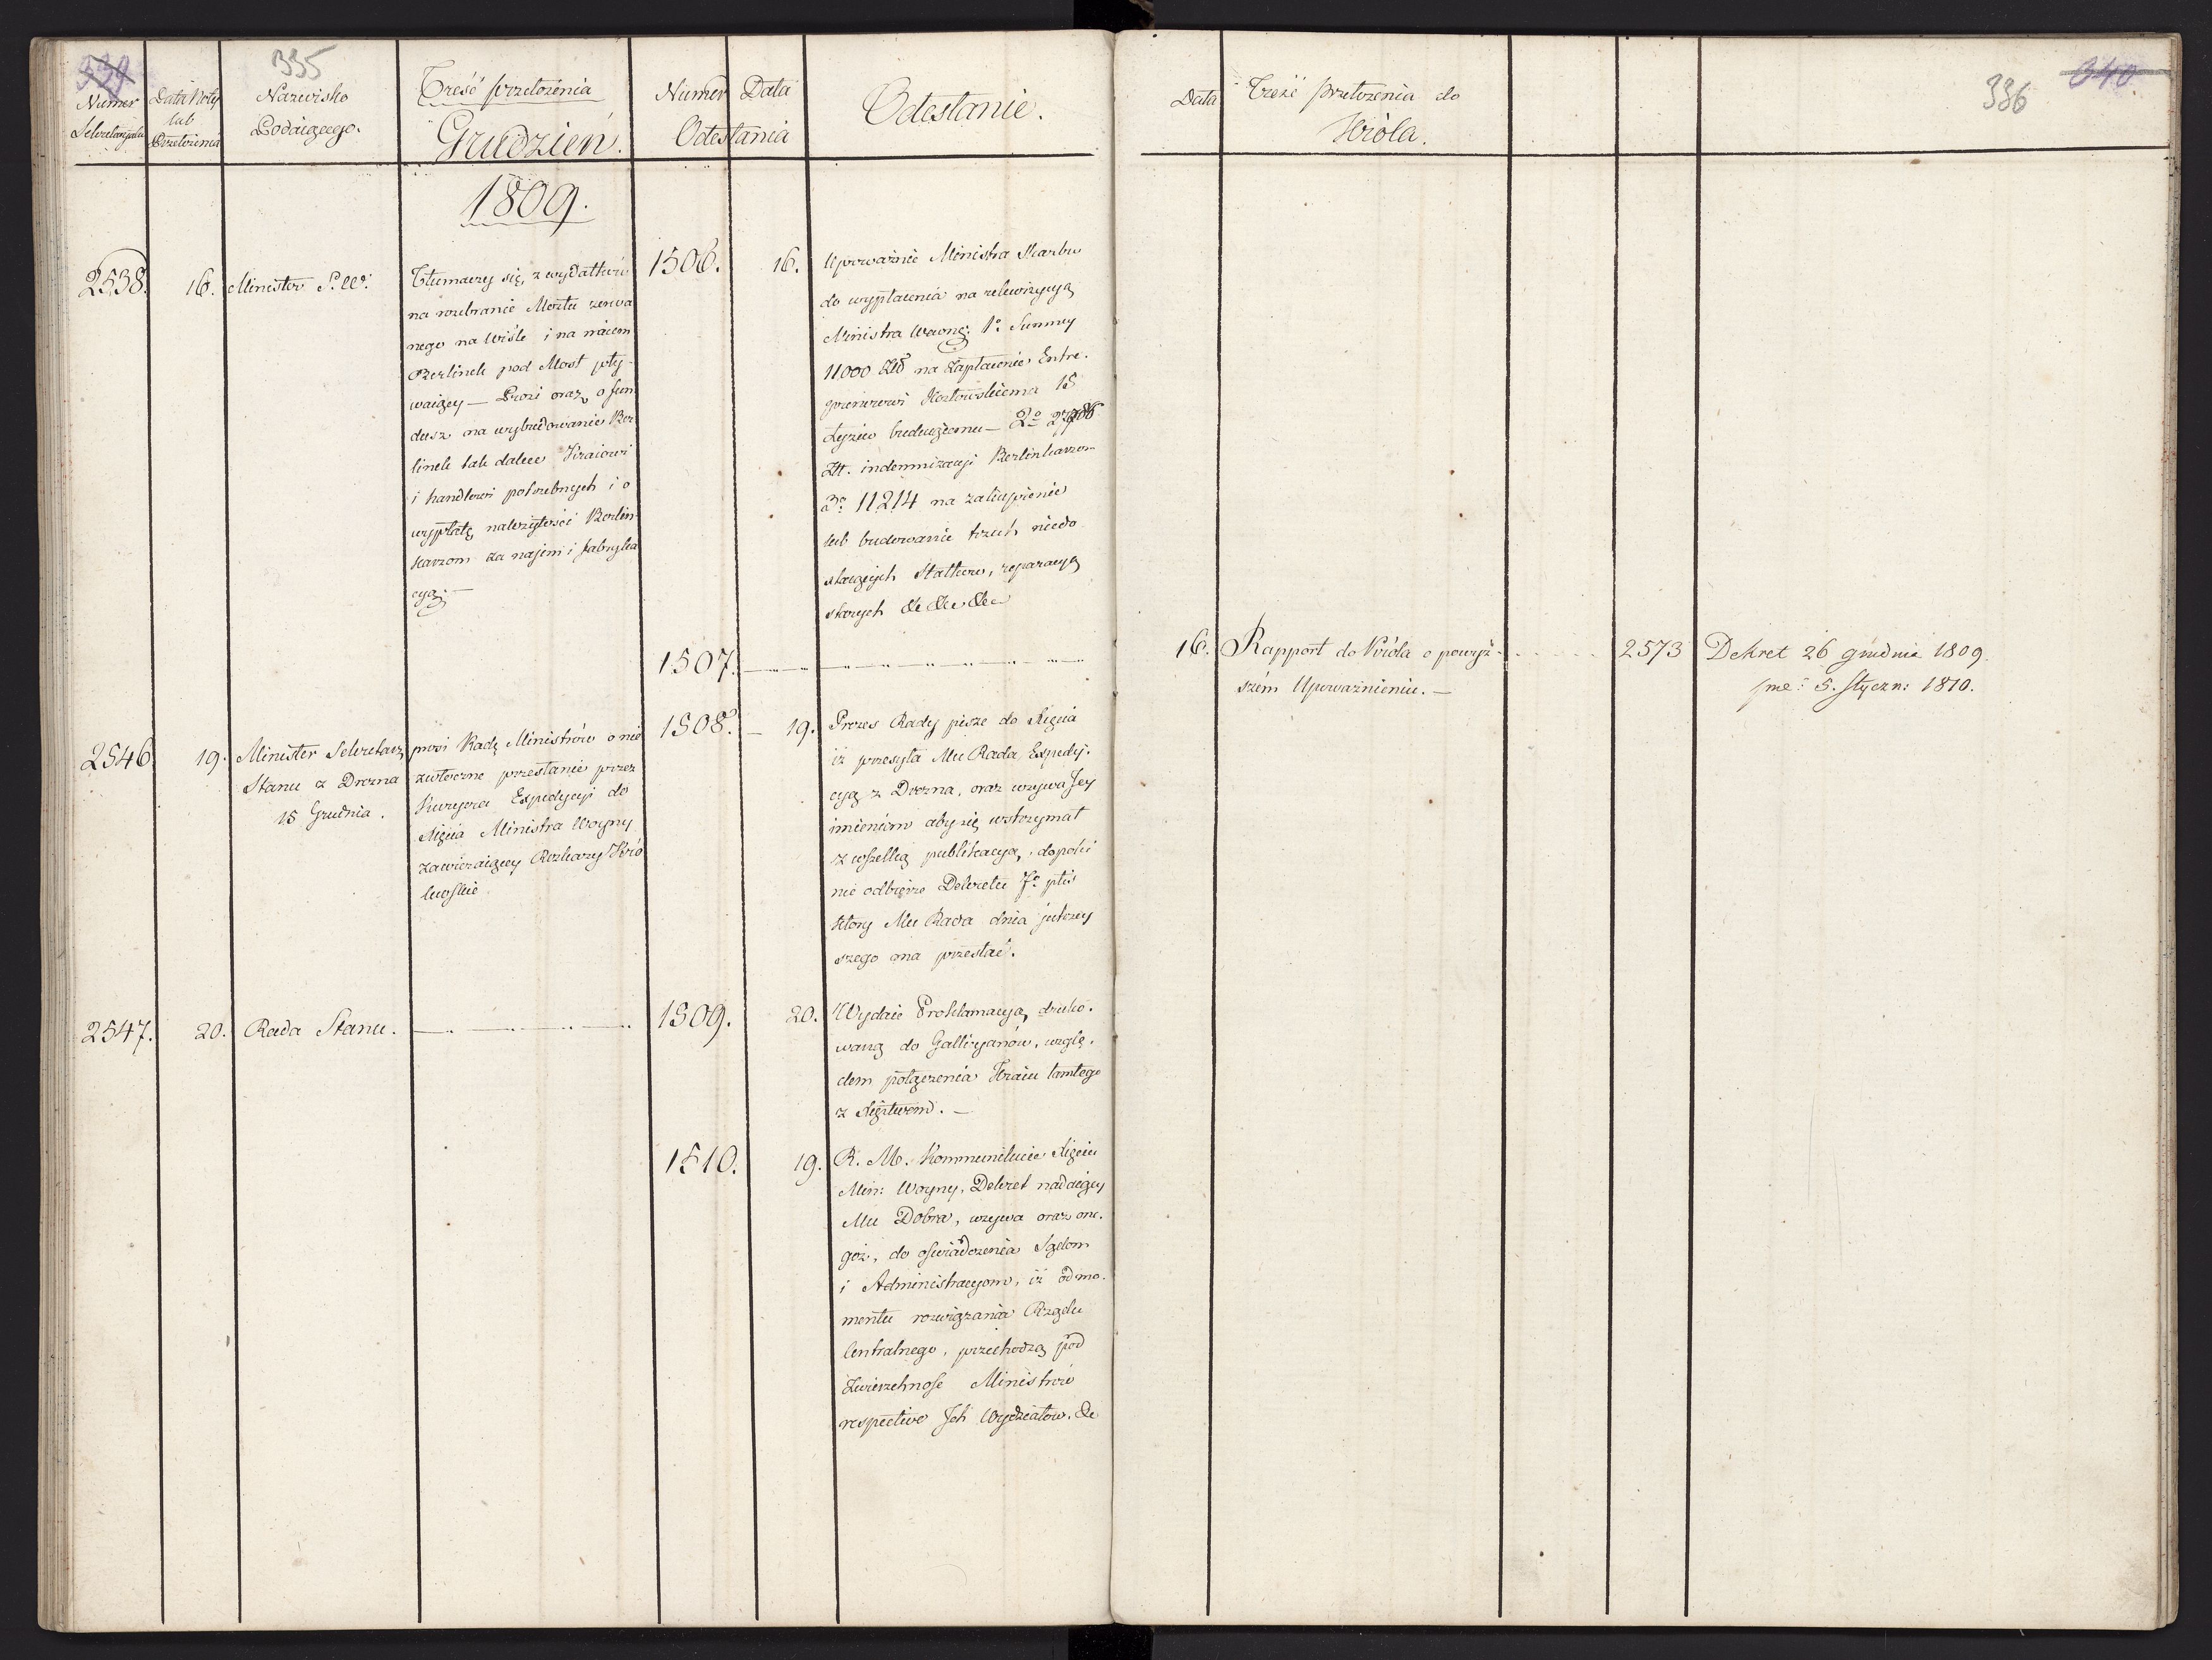 339
335
Numer
Sekretaryatu
Data Noty
lub
Przełożenia
Nazwisko
Podaiącego.
Treść przełożenia
Grudzień.
Numer Data
Odesłania
Odesłanie.
1809.
2538. 16. Minister S. W:
Tłumaczy się, z wydatków
na rozebranie Mostu zerwa
nego na Wiśle i na naiem
Berlinek pod Most poły-
waiący — Prosi oraz o fun
dusz na wybudowanie Ber
linek tak dalece Kraiowi
i handlowi potrzebnych i o
wypłatę należytości Berlin
karzom za najem i fabryka
cyą. —
1506. 16. Upoważnie Ministra Skarbu
do wypłacenia na rekwizycyą
Ministra Woyny. 1o Summy
11000 Zł na zapłacenie Entre-
prenerowi Kozłowskiemu 15
Łyżew buduiącemu — 2o
Zł. indemnizacyi Berlinkarzom
3o 11214 na zakupienie
lub budowanie trzech niedo
staiących Statków, reparacyą
starych &c &c &c
1507.
2546. 19. Minister Sekretarz
Stanu z Drezna
15 Grudnia.
prosi Radę Ministrów o nie
zwłoczne przesłanie przez
Kuryera Expedycyi do
Xięcia Ministra Woyny
zawieraiącey Rozkazy Kró
lewskie
1508. — 19. Prezes Rady pisze do Xięcia
iż przesyła Mu Rada Expedy-
cyą z Drezna, oraz wzywa Jey
imieniem aby się wstrzymał
z wszelką publikacyą, dopoki
nie odbierze Dekretu
ktory Mu Rada dnia jutrzey
szego ma przesłać.
2547. 20. Rada Stanu.
1509. 20. Wydaie Proklamacyą druko-
waną do Gallicyanów, wzglę-
dem połączenia Kraiu tamtego
z Xięstwem. —
1510. 19. R. M. Kommunikuie Xięciu
Min: Woyny, Dekret nadaiący
Mu Dobra, wzywa oraz one-
goż, do oświadczenia Sądom
i Administracyom, iż od mo-
mentu rozwiązania Rządu
Centralnego, przechodzą pod
Zwierzchność Ministrów
respective Ich Wydziałow. &c
336
340.
Data
Treść przełożenia do
Króla.
16. Rapport do Króla o powyż- 2573 Dekret 26 grudnia 1809
szém Upoważnieniu. — pne: 5. Styczn: 1810.